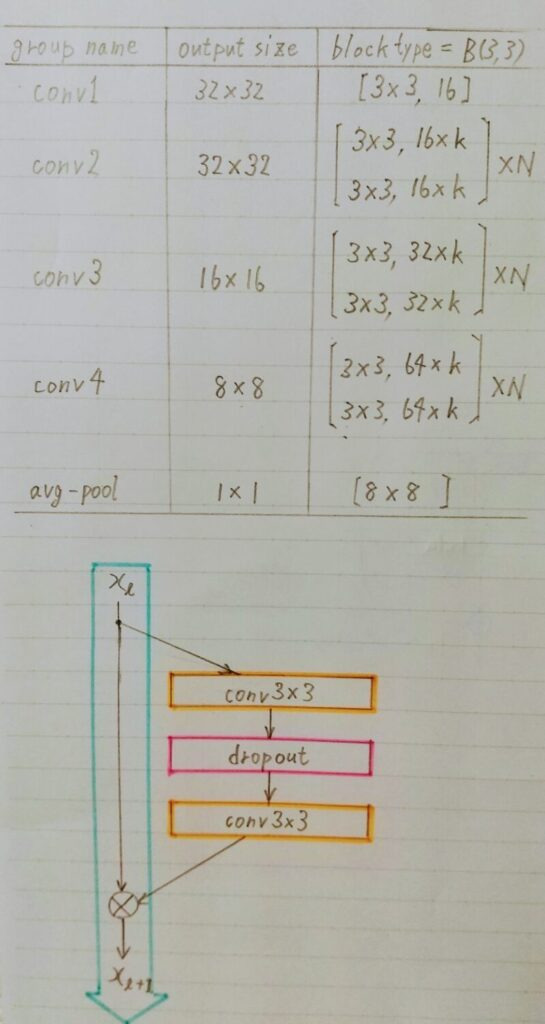 group name output size block type = B(3,3)
conv1 32×32 [3×3, 16]
conv2 32×32 [3×3, 16×k
3×3, 16×k] ×N
conv3 16×16 [3×3, 32×k
3×3, 32×k] ×N
conv4 8×8 [3×3, 64×k
3×3, 64×k] ×N
avg-pool 1×1 [8×8 ]
xₗ
conv3×3
dropout
conv3×3
xₗ₊₁